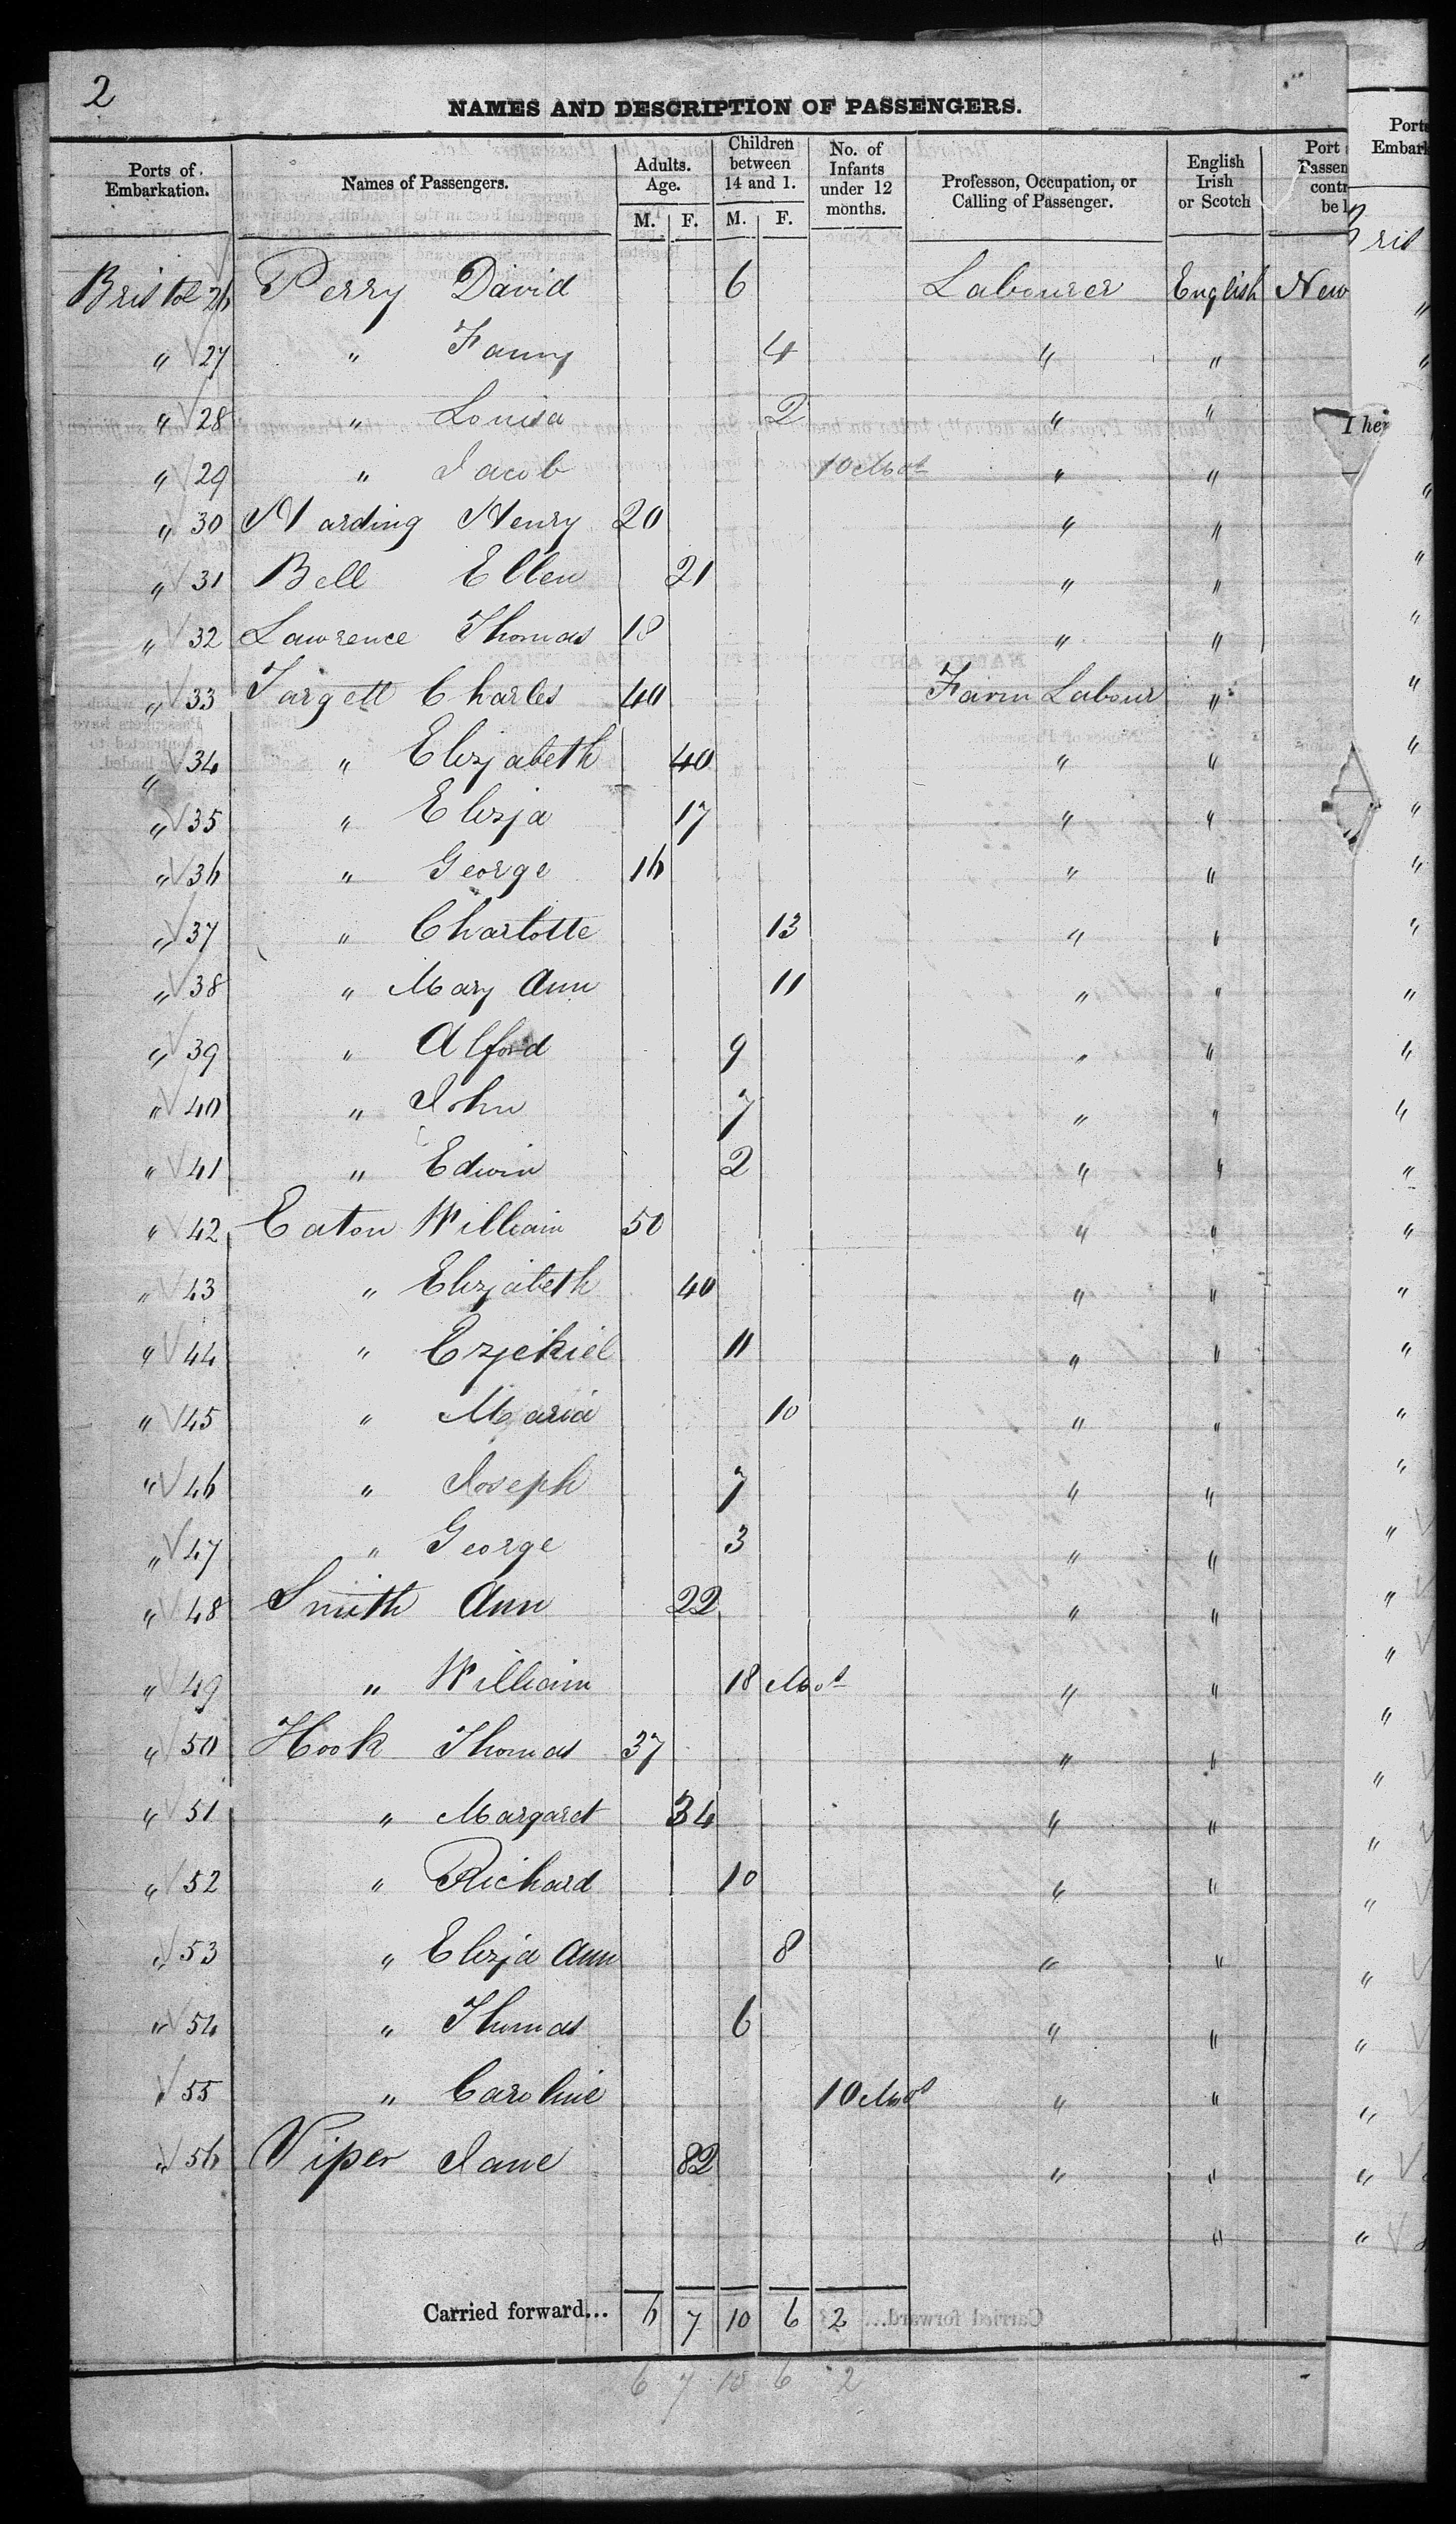 2
NAMES AND DESCRIPTION OF PASSENGERS.
Ports of Embarkation. Names of Passengers. Adults. Age. M. F. Children between 14 and 1. M. F. No. of Infants under 12 months. Professon, Occupation, or Calling of Passenger. English Irish or Scotch Port Passen contr be l
Bristol 26 Perry David 6 Labourer English New
" 27 " Fanny 4 " "
" 28 " Louisa 2 " "
" 29 " Jacob 10 Mos " "
" 30 Harding Henry 20 " "
" 31 Bell Ellen 21 " "
" 32 Lawrence Thomas 18 " "
" 33 Targett Charles 40 Farm Labour "
" 34 " Elizabeth 40 " "
" 35 " Eliza 17 " "
" 36 " George 16 " "
" 37 " Charlotte 13 " "
" 38 " Mary Ann 11 " "
" 39 " Alford 9 " "
" 40 " John 7 " "
" 41 " Edwin 2 " "
" 42 Eaton William 50 " "
" 43 " Elizabeth 40 " "
" 44 " Ezekiel 11 " "
" 45 " Maria 10 " "
" 46 " Joseph 7 " "
" 47 " George 3 " "
" 48 Smith Ann 22 " "
" 49 " William 18 Mos " "
" 50 Hook Thomas 37 " "
" 51 " Margaret 34 " "
" 52 " Richard 10 " "
" 53 " Eliza Ann 8 " "
" 54 " Thomas 6 " "
" 55 " Caroline 10 Mos " "
" 56 Viper Jane 82 " "
"
Carried forward... 6 7 10 6 2
6 7 10 6 2
Ports
Embark
Bris
I her